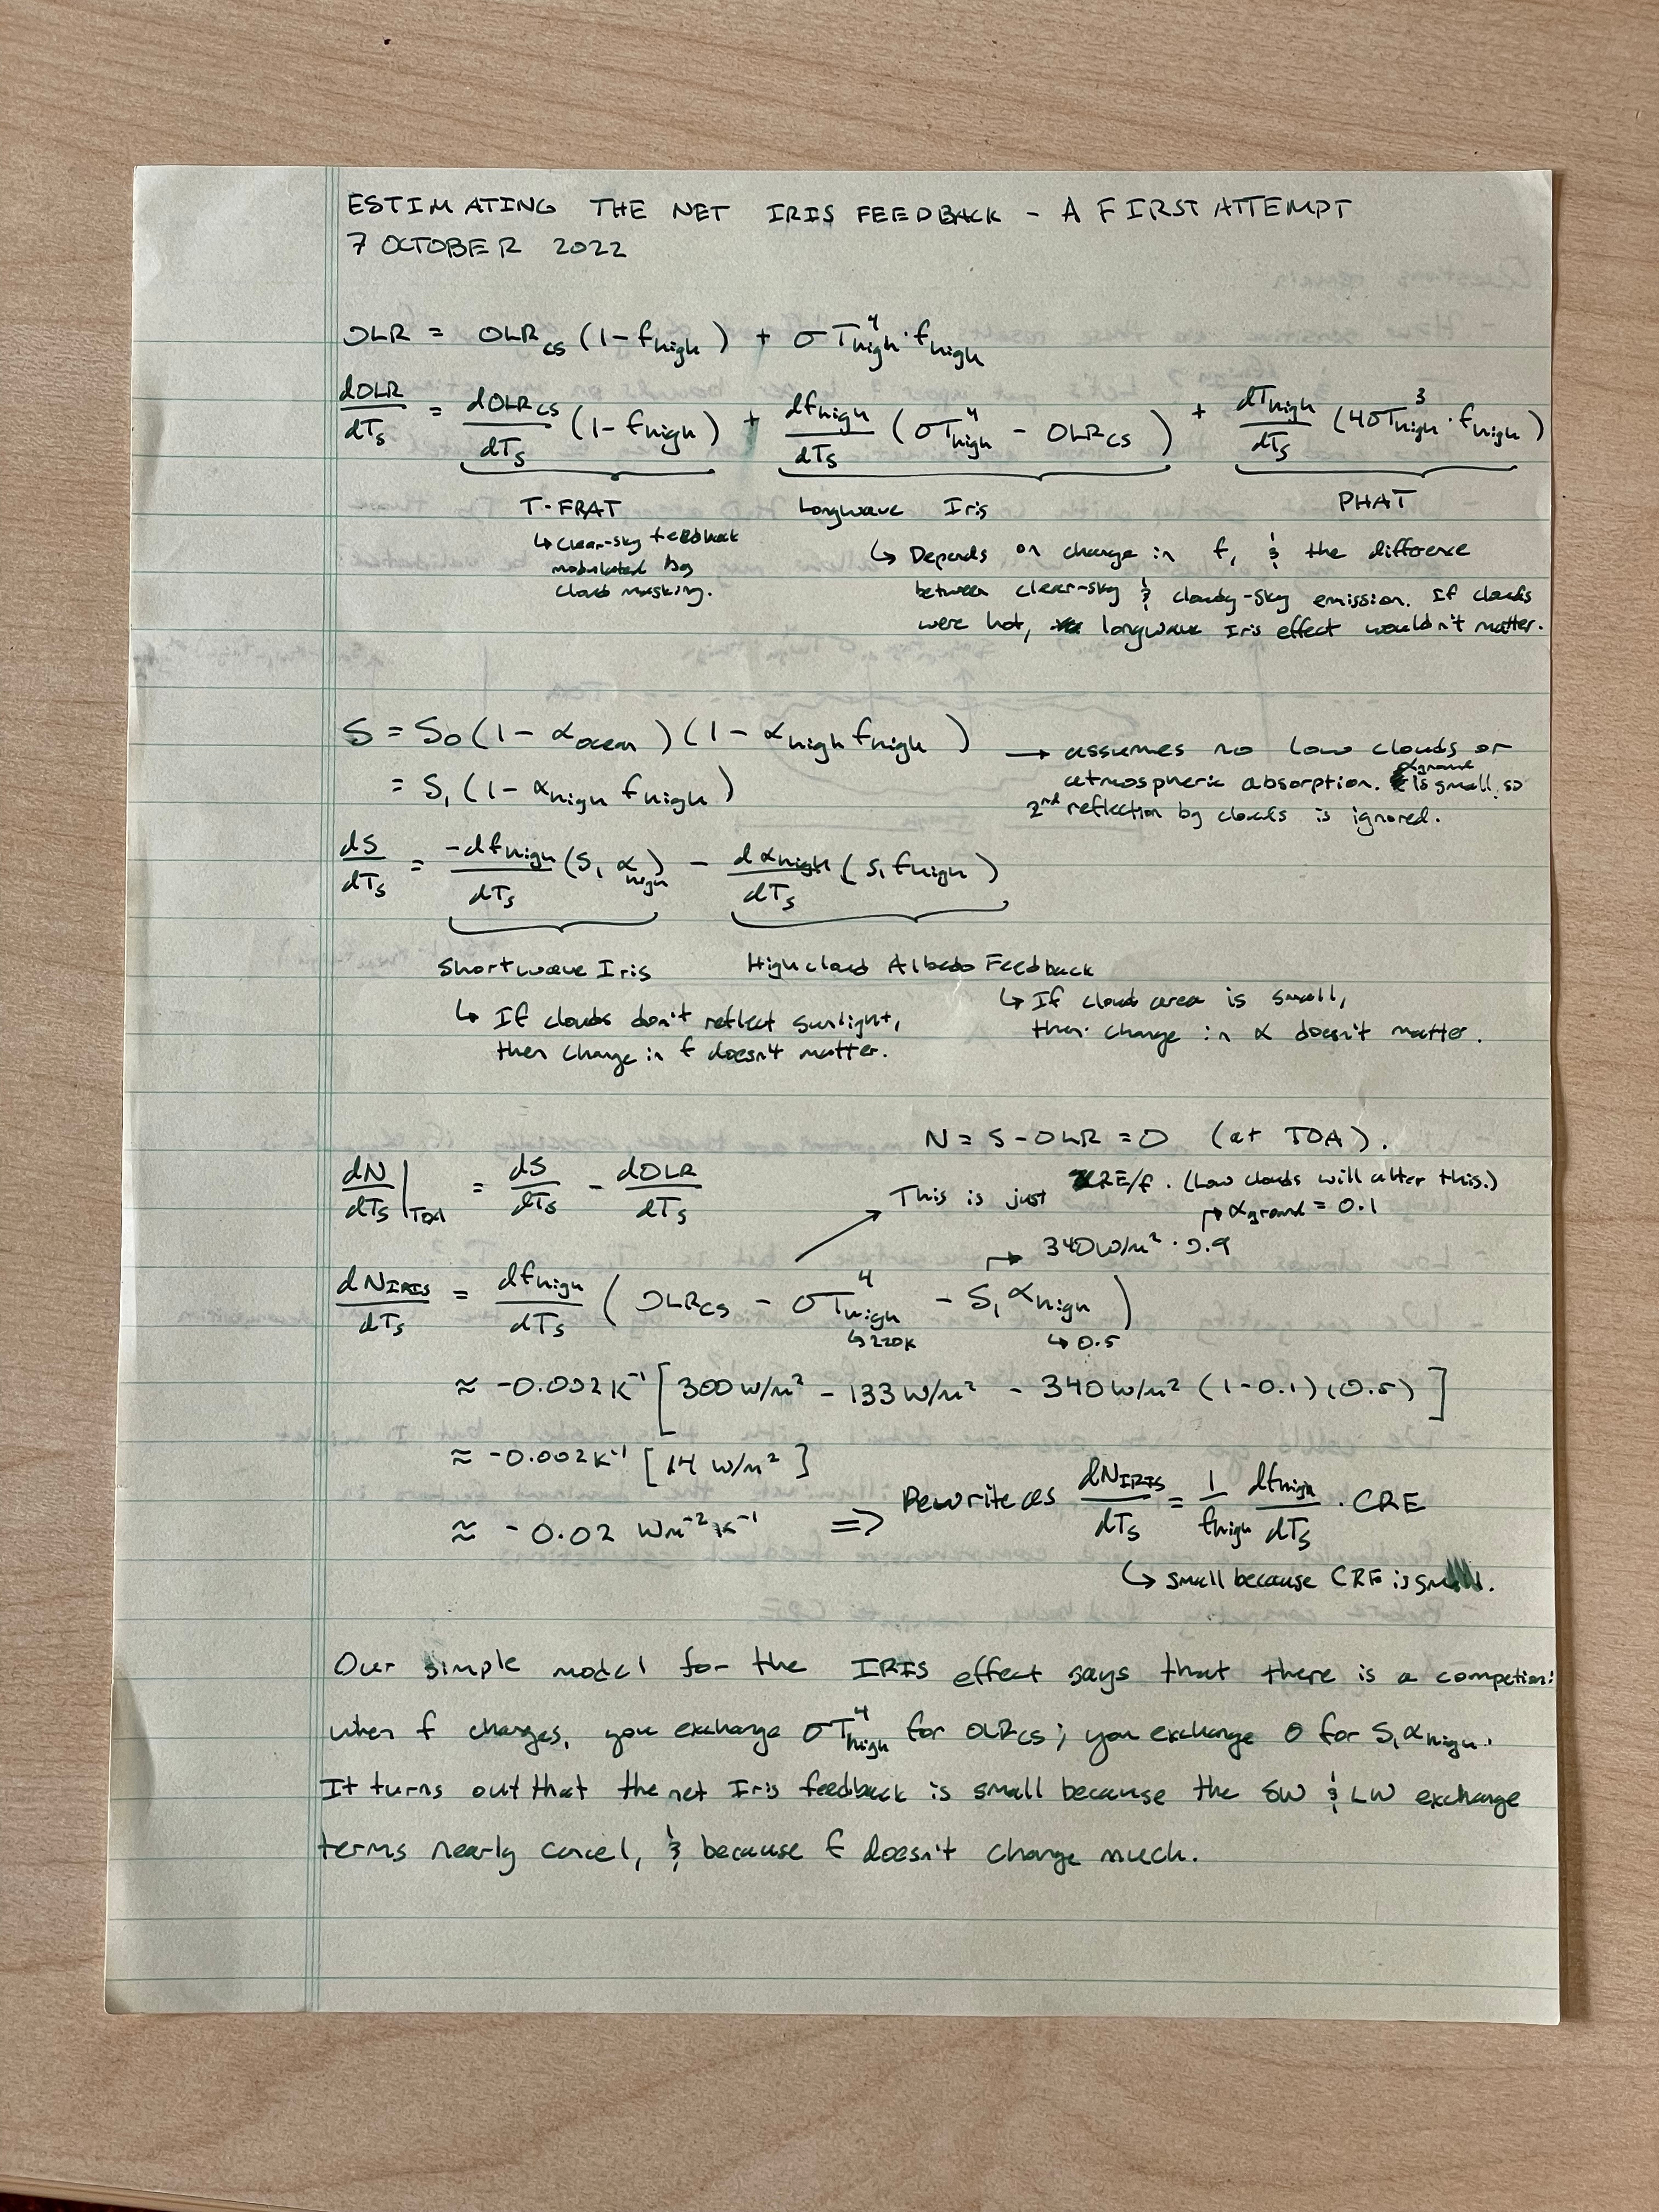 ESTIMATING THE NET IRIS FEEDBACK - A FIRST ATTEMPT
7 OCTOBER 2022
OLR = OLR_cs (1 - f_high) + σT_high^4 · f_high
dOLR/dT_s = dOLR_cs/dT_s (1 - f_high) + df_high/dT_s (σT_high^4 - OLR_cs) + dT_high/dT_s (4σT_high^3 · f_high)
T-FRAT
↳ clear-sky feedback
modulated by
cloud masking.
Longwave Iris
↳ Depends on change in f, & the difference
between clear-sky & cloudy-sky emission. If clouds
were hot, longwave Iris effect wouldn't matter.
PHAT
S = S_0 (1 - α_ocean)(1 - α_high f_high)
= S_1 (1 - α_high f_high)
→ assumes no low clouds or
atmospheric absorption. α_ground is small, so
2nd reflection by clouds is ignored.
dS/dT_s = -df_high/dT_s (S_1 α_high) - dα_high/dT_s (S_1 f_high)
Shortwave Iris
↳ If clouds don't reflect sunlight,
then change in f doesn't matter.
High cloud Albedo Feedback
↳ If cloud area is small,
then change in α doesn't matter.
N = S - OLR = 0 (at TOA).
dN/dT_s |_TOA = dS/dT_s - dOLR/dT_s
This is just CRE/f. (Low clouds will alter this.)
↱ α_ground = 0.1
↱ 340 W/m² · 0.9
dN_IRIS/dT_s = df_high/dT_s ( OLR_cs - σT_high^4 - S_1 α_high )
↳ 220K ↳ 0.5
≈ -0.002 K⁻¹ [ 300 W/m² - 133 W/m² - 340 W/m² (1-0.1)(0.5) ]
≈ -0.002 K⁻¹ [ 14 W/m² ]
≈ -0.02 Wm⁻² K⁻¹ ⇒ Rewrite as dN_IRIS/dT_s = 1/f_high df_high/dT_s · CRE
↳ small because CRE is small.
Our simple model for the IRIS effect says that there is a competion:
when f changes, you exchange σT_high^4 for OLR_cs; you exchange 0 for S_1 α_high.
It turns out that the net Iris feedback is small because the SW & LW exchange
terms nearly cancel, & because f doesn't change much.